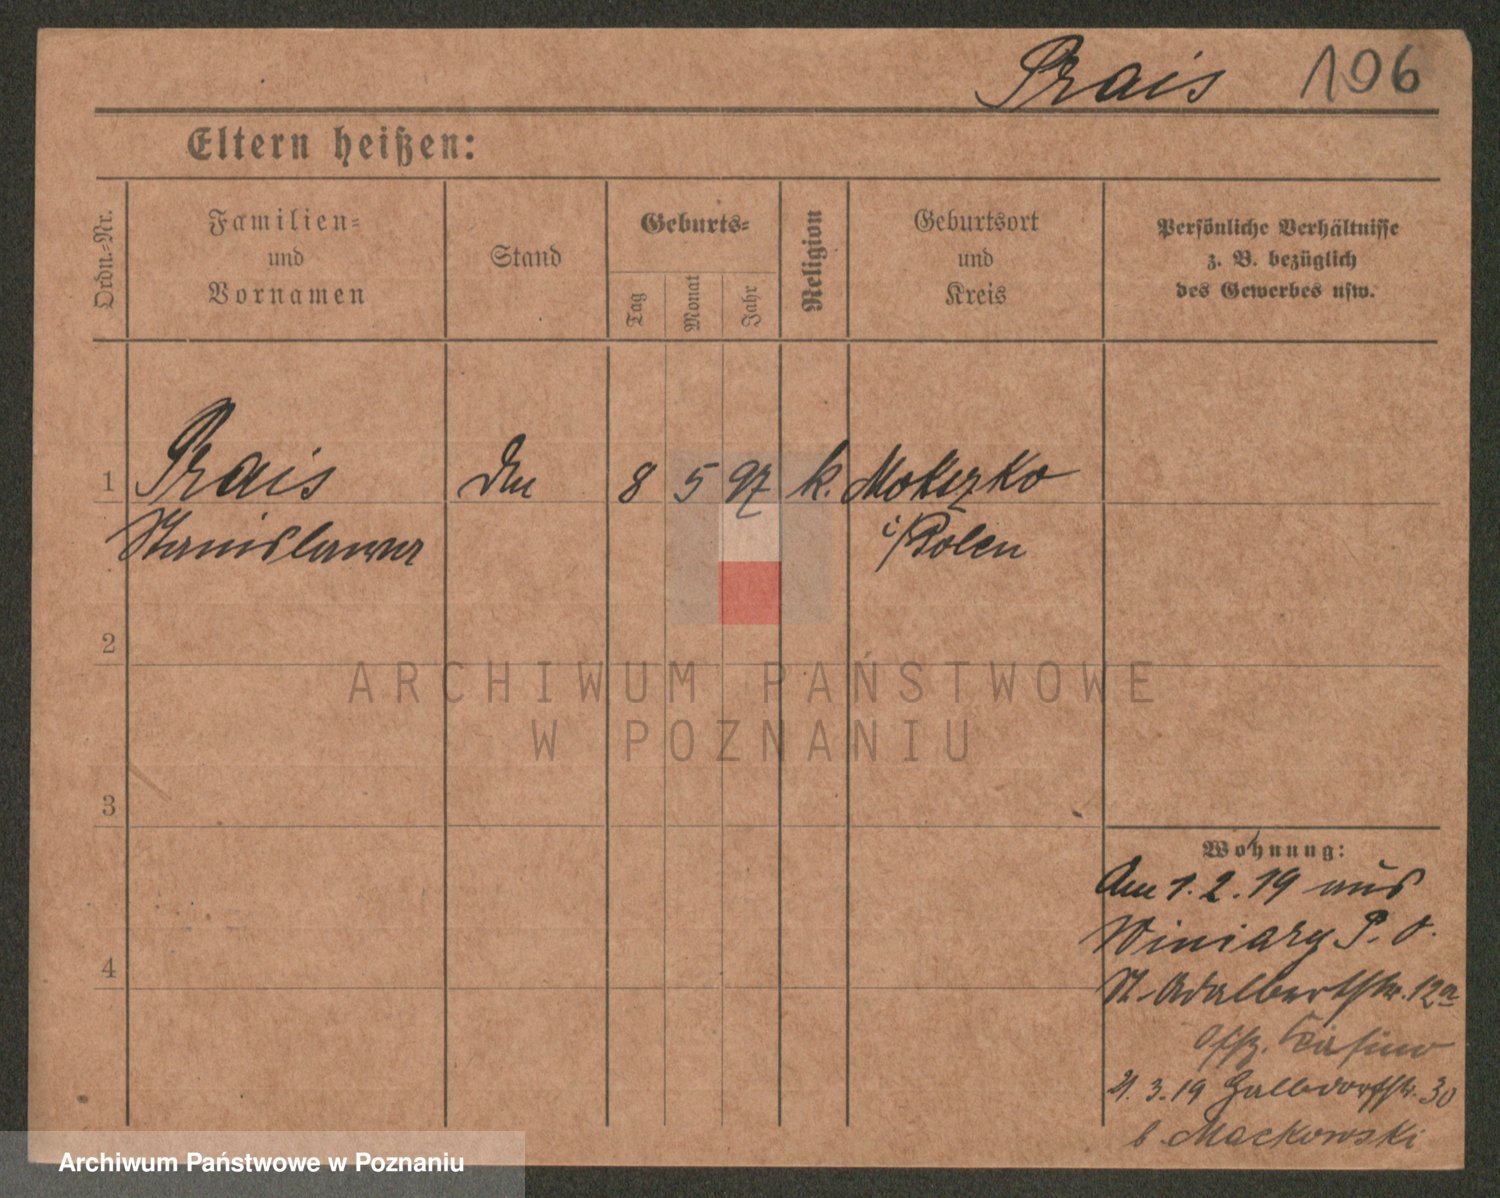 Prais 106
Eltern heißen:
Ordn.-Nr.
Familien-
und
Vornamen
Stand
Geburts-
Tag
Monat
Jahr
Religion
Geburtsort
und
Kreis
Persönliche Verhältnisse
z. B. bezüglich
des Gewerbes usw.
1 Prais 8 5 97 k. Mokszko
Stanislawa i/Polen
2
3
4
ARCHIWUM PAŃSTWOWE
W POZNANIU
Wohnung:
Am 1.2.19 aus
Winiary P. O.
St. Adalbertstr. 12a
Offz. Casino
21.3.19 Halldorfstr. 30
b. Mackowski
Archiwum Państwowe w Poznaniu